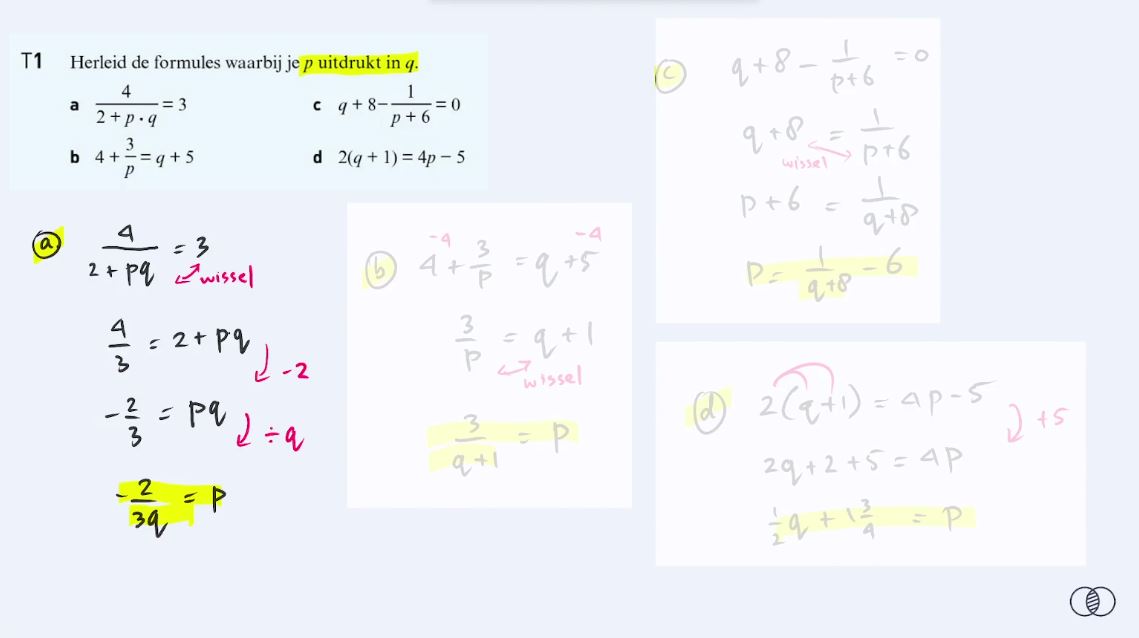 T1 Herleid de formules waarbij je p uitdrukt in q.
a 4/(2 + p · q) = 3
c q + 8 − 1/(p + 6) = 0
b 4 + 3/p = q + 5
d 2(q + 1) = 4p − 5
a 4/(2 + pq) = 3
wissel
4/3 = 2 + pq
-2
-2/3 = pq
÷q
-2/(3q) = p
b 4 + 3/p = q + 5
-4 -4
3/p = q + 1
wissel
3/(q+1) = p
c q + 8 − 1/(p+6) = 0
q + 8 = 1/(p+6)
wissel
p + 6 = 1/(q+8)
p = 1/(q+8) − 6
d 2(q+1) = 4p − 5
+5
2q + 2 + 5 = 4p
1/2 q + 1 3/4 = p